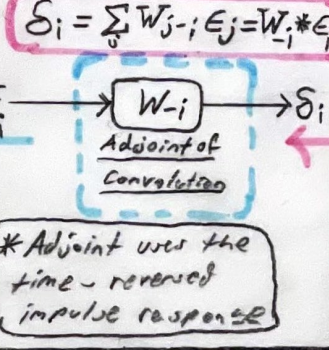 δi = Σ Wj-i ϵj = W-i * ϵi
W-i
δi
Adjoint of
Convolution
* Adjoint uses the
time-reversed
impulse response